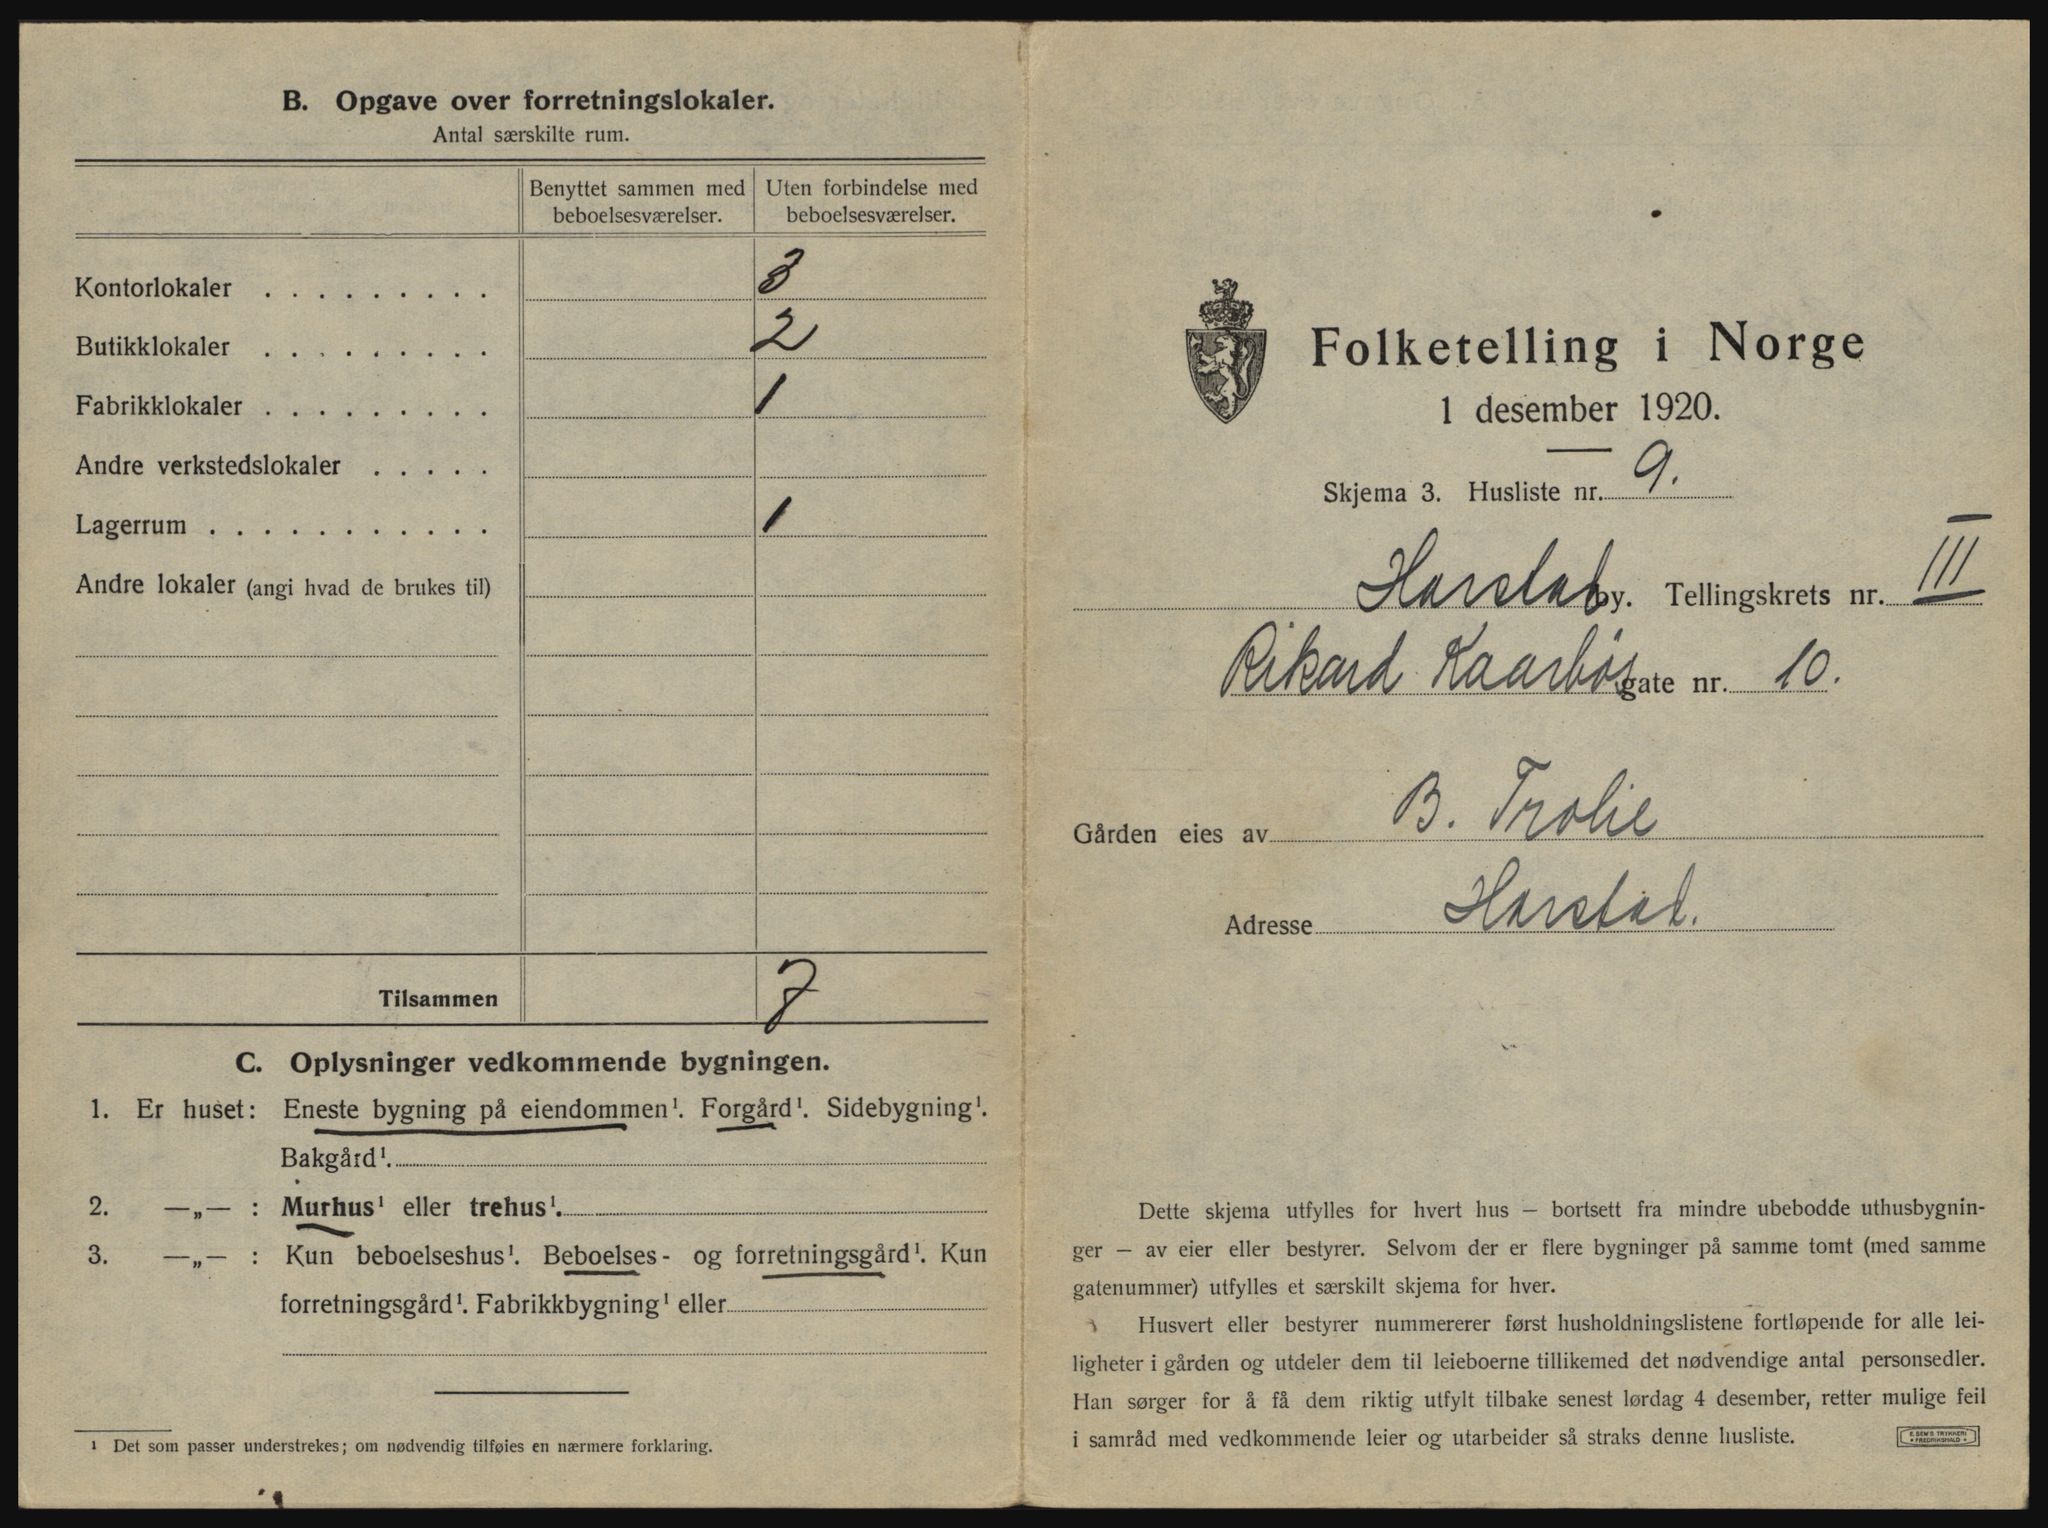 B. Opgave over forretningslokaler.
Antal særskilte rum.
Benyttet sammen med beboelsesværelser.
Uten forbindelse med beboelsesværelser.
Kontorlokaler . . . . . . . . . 3
Butikklokaler . . . . . . . . . 2
Fabrikklokaler . . . . . . . . . 1
Andre verkstedslokaler . . . . .
Lagerrum . . . . . . . . . . . 1
Andre lokaler (angi hvad de brukes til)
Tilsammen 7
C. Oplysninger vedkommende bygningen.
1. Er huset: Eneste bygning på eiendommen¹. Forgård¹. Sidebygning¹.
Bakgård¹.
2. —„— : Murhus¹ eller trehus¹.
3. —„— : Kun beboelseshus¹. Beboelses- og forretningsgård¹. Kun
forretningsgård¹. Fabrikkbygning¹ eller
¹ Det som passer understrekes; om nødvendig tilføies en nærmere forklaring.
Folketelling i Norge
1 desember 1920.
Skjema 3. Husliste nr. 9.
Harstad by. Tellingskrets nr. III
Rikard Kaarbøs gate nr. 10.
Gården eies av B. Trolie
Adresse Harstad.
Dette skjema utfylles for hvert hus — bortsett fra mindre ubebodde uthusbygnin-
ger — av eier eller bestyrer. Selvom der er flere bygninger på samme tomt (med samme
gatenummer) utfylles et særskilt skjema for hver.
Husvert eller bestyrer nummererer først husholdningslistene fortløpende for alle lei-
ligheter i gården og utdeler dem til leieboerne tillikemed det nødvendige antal personsedler.
Han sørger for å få dem riktig utfylt tilbake senest lørdag 4 desember, retter mulige feil
i samråd med vedkommende leier og utarbeider så straks denne husliste.
E. SEM'S TRYKKERI
• FREDRIKSHALD •